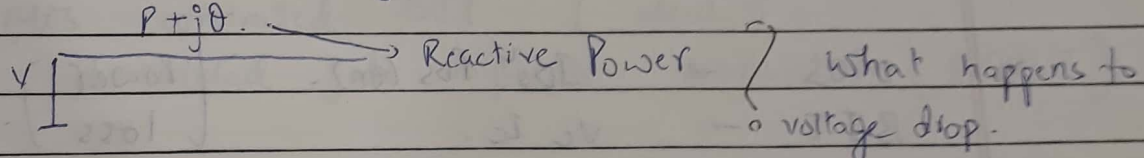 P + jθ.
V → Reactive Power ? What happens to
voltage drop.